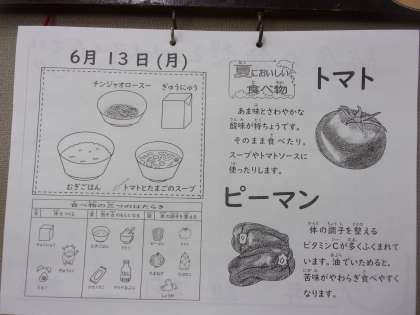 6月 13日 (月)
チンジャオロースー
ぎゅうにゅう
むぎごはん
トマトとたまごのスープ
食べ物の三つのはたらき
夏においしい
食べ物
トマト
あま味とさわやかな
酸味が特ちょうです。
そのまま食べたり、
スープやトマトソースに
使ったりします。
ピーマン
体の調子を整える
ビタミンCが多くふくまれて
います。油でいためると、
苦味がやわらぎ食べやすく
なります。